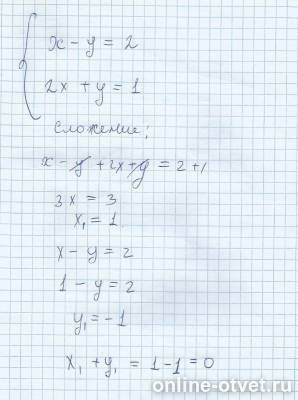 x - y = 2
2x + y = 1
сложение;
x - y + 2x + y = 2 + 1
3x = 3
x₁ = 1
x - y = 2
1 - y = 2
y₁ = -1
x₁ + y₁ = 1 - 1 = 0
online-otvet.ru